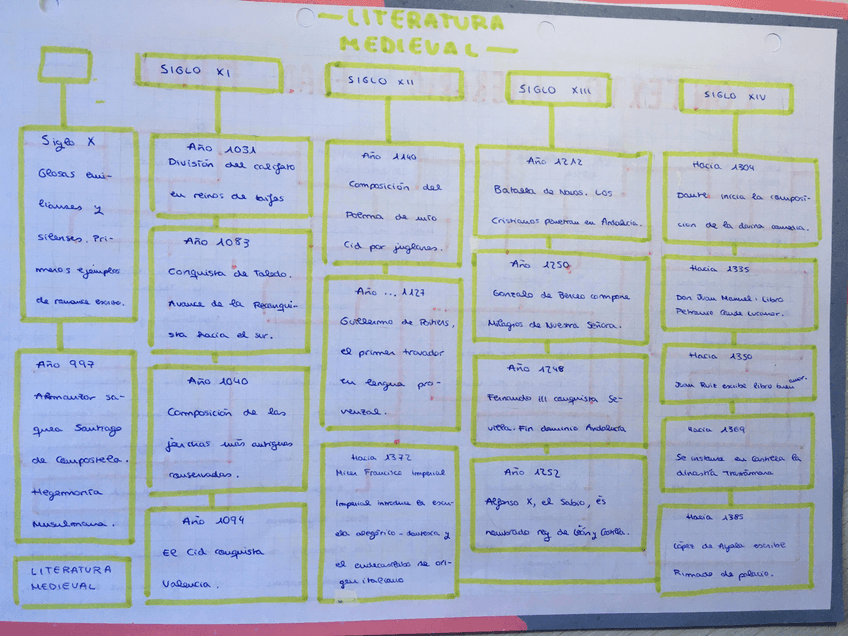 — LITERATURA
MEDIEVAL —
Siglo X
Glosas emi-
lianses y
silenses. Pri-
meros ejemplos
de romance escrito.
Año 997
Almanzor sa-
quea Santiago
de Compostela.
Hegemonía
Musulmana.
LITERATURA
MEDIEVAL
SIGLO XI
Año 1031
División del califato
en reinos de taifas
Año 1083
Conquista de Toledo.
Avance de la Reconqui-
sta hacia el sur.
Año 1040
Composición de las
jarchas más antiguas
conservadas.
Año 1094
El Cid conquista
Valencia.
SIGLO XII
Año 1140
Composición del
Poema de mio
Cid por juglares.
Año ... 1127
Guillermo de Poitiers,
el primer trovador
en lengua pro-
venzal.
Hacia 1372
Micer Francisco Imperial
Imperial introduce la escu-
ela alegórico-dantesca y
el endecasílabo de ori-
gen italiano
SIGLO XIII
Año 1212
Batalla de Navas. Los
Cristianos penetran en Andalucía.
Año 1250
Gonzalo de Berceo compone
Milagros de Nuestra Señora.
Año 1248
Fernando III conquista Se-
villa. Fin dominio Andalucía
Año 1252
Alfonso X, el Sabio, es
nombrado rey de León y Castilla.
SIGLO XIV
Hacia 1304
Dante inicia la composi-
cion de la divina comedia.
Hacia 1335
Don Juan Manuel. Libro
Petronio Conde Lucanor.
Hacia 1350
Juan Ruiz escribe libro buen amor.
Hacia 1369
Se instaura en Castilla la
dinastía Trastámara
Hacia 1385
López de Ayala escribe
Rimado de palacio.